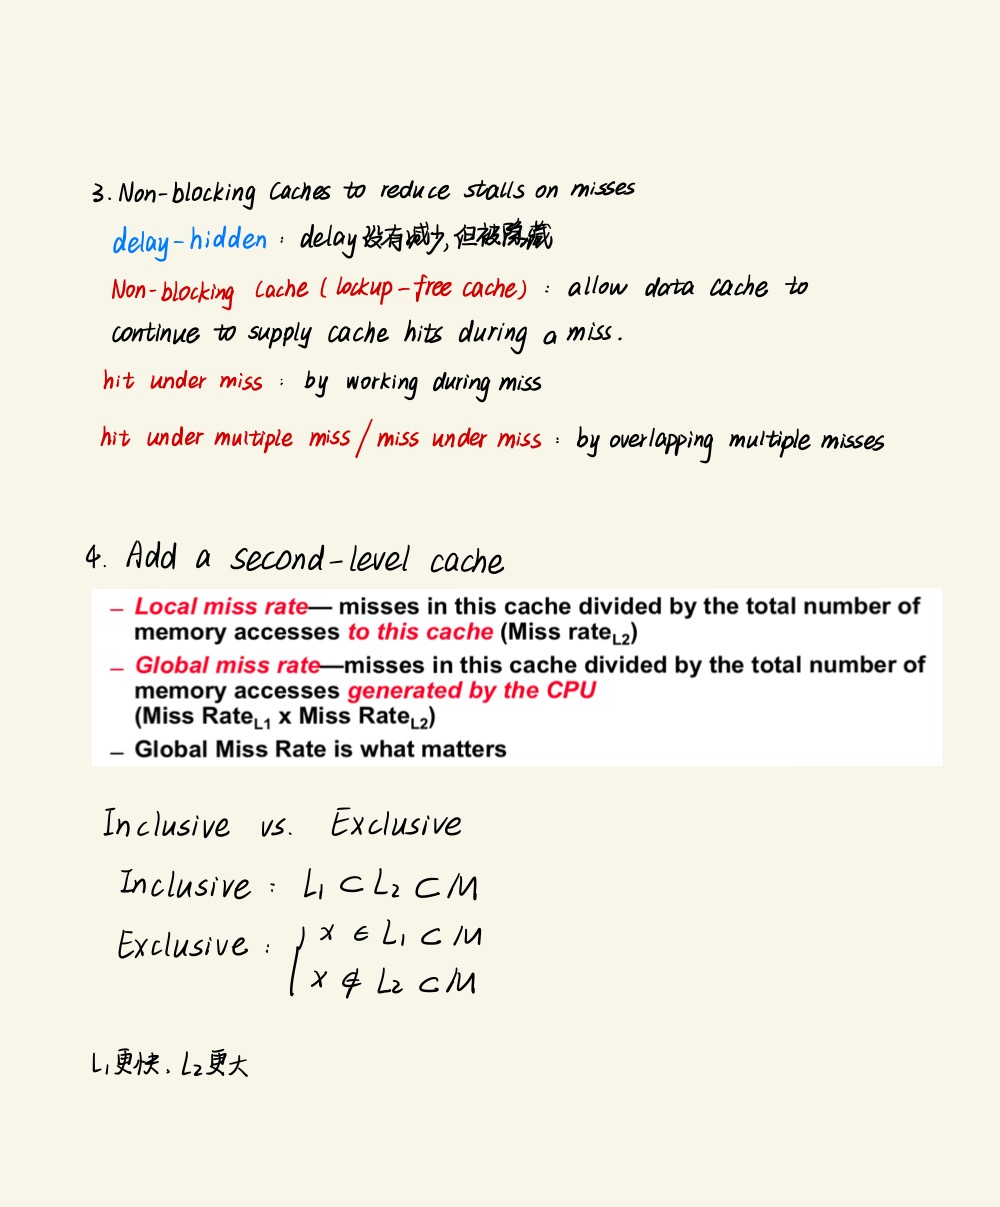 3. Non-blocking Caches to reduce stalls on misses
delay-hidden : delay没有减少, 但被隐藏
Non-blocking Cache (lockup-free cache) : allow data cache to
continue to supply cache hits during a miss.
hit under miss : by working during miss
hit under multiple miss / miss under miss : by overlapping multiple misses
4. Add a second-level cache
– Local miss rate— misses in this cache divided by the total number of
memory accesses to this cache (Miss rateL2)
– Global miss rate—misses in this cache divided by the total number of
memory accesses generated by the CPU
(Miss RateL1 x Miss RateL2)
– Global Miss Rate is what matters
Inclusive vs. Exclusive
Inclusive : L1 ⊂ L2 ⊂ M
Exclusive : { x ∈ L1 ⊂ M
x ∉ L2 ⊂ M
L1更快、L2更大